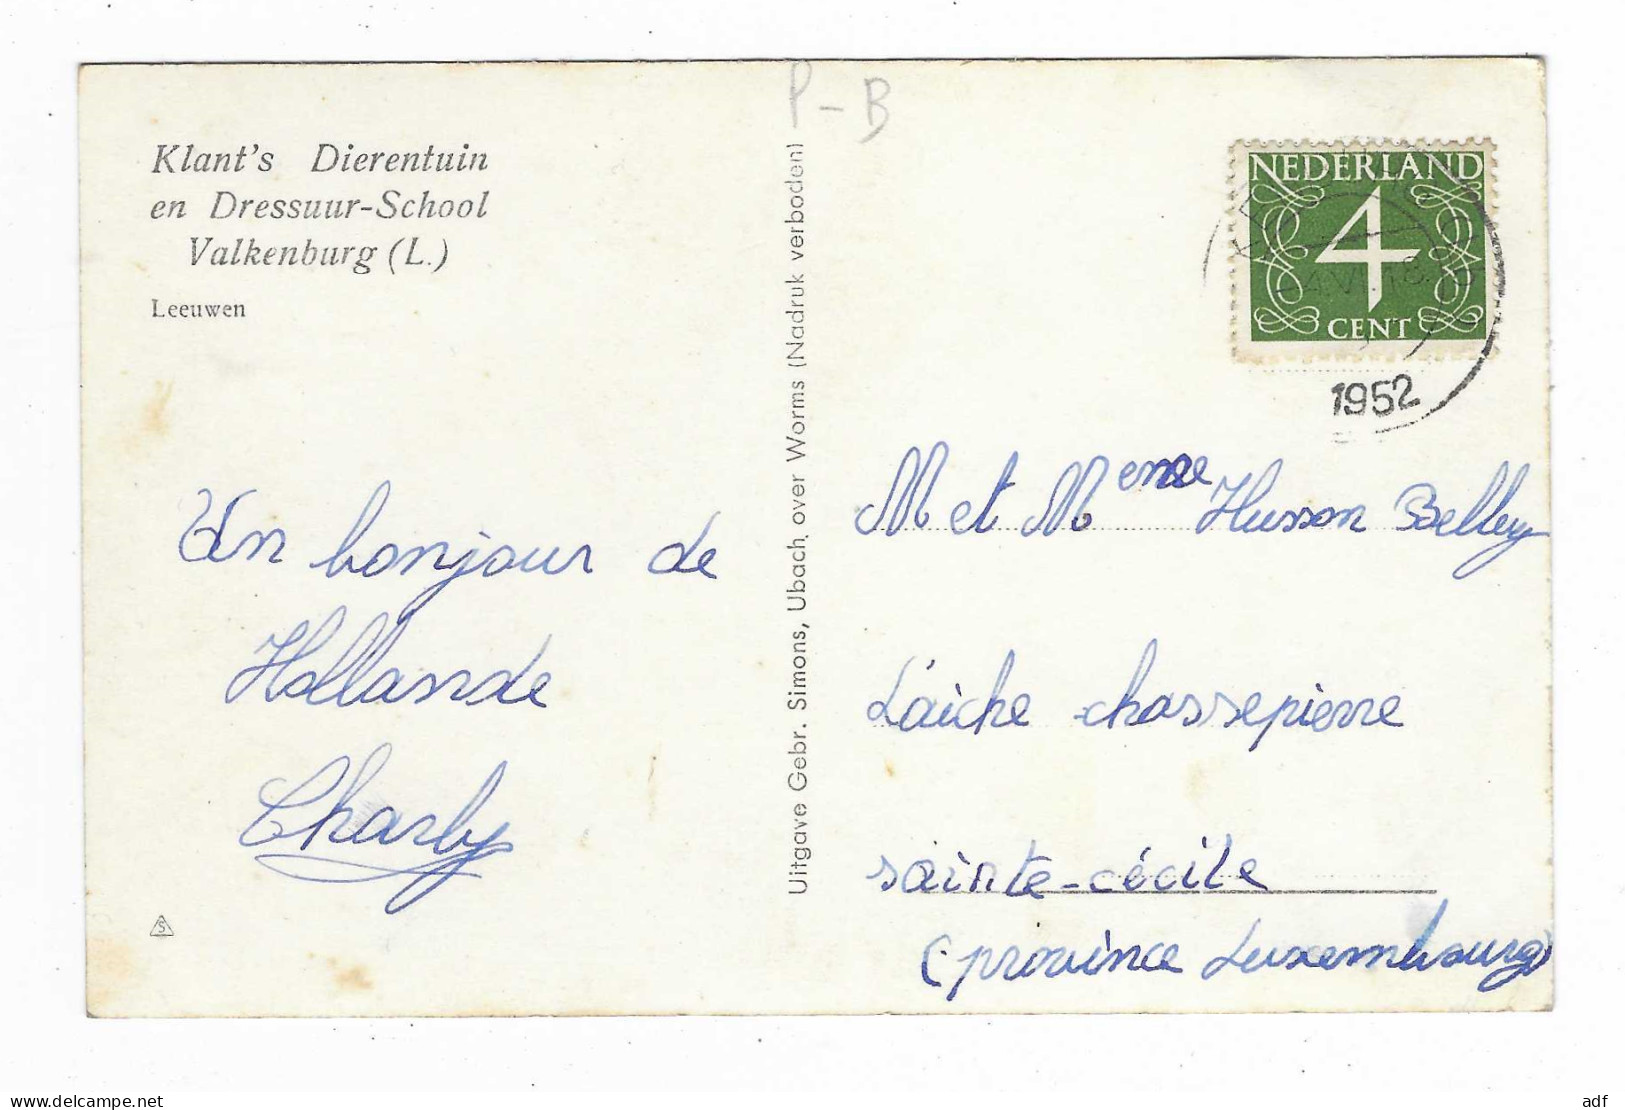 P-B
Klant's Dierentuin
en Dressuur-School
Valkenburg (L.)
Leeuwen
Un bonjour de
Hollande
Charly
S
Uitgave Gebr. Simons, Ubach over Worms (Nadruk verboden)
NEDERLAND
4
CENT
1952
M et Meme Husson Belley
Laiche chassepierre
sainte-cécile
(province Luxembourg)
adf